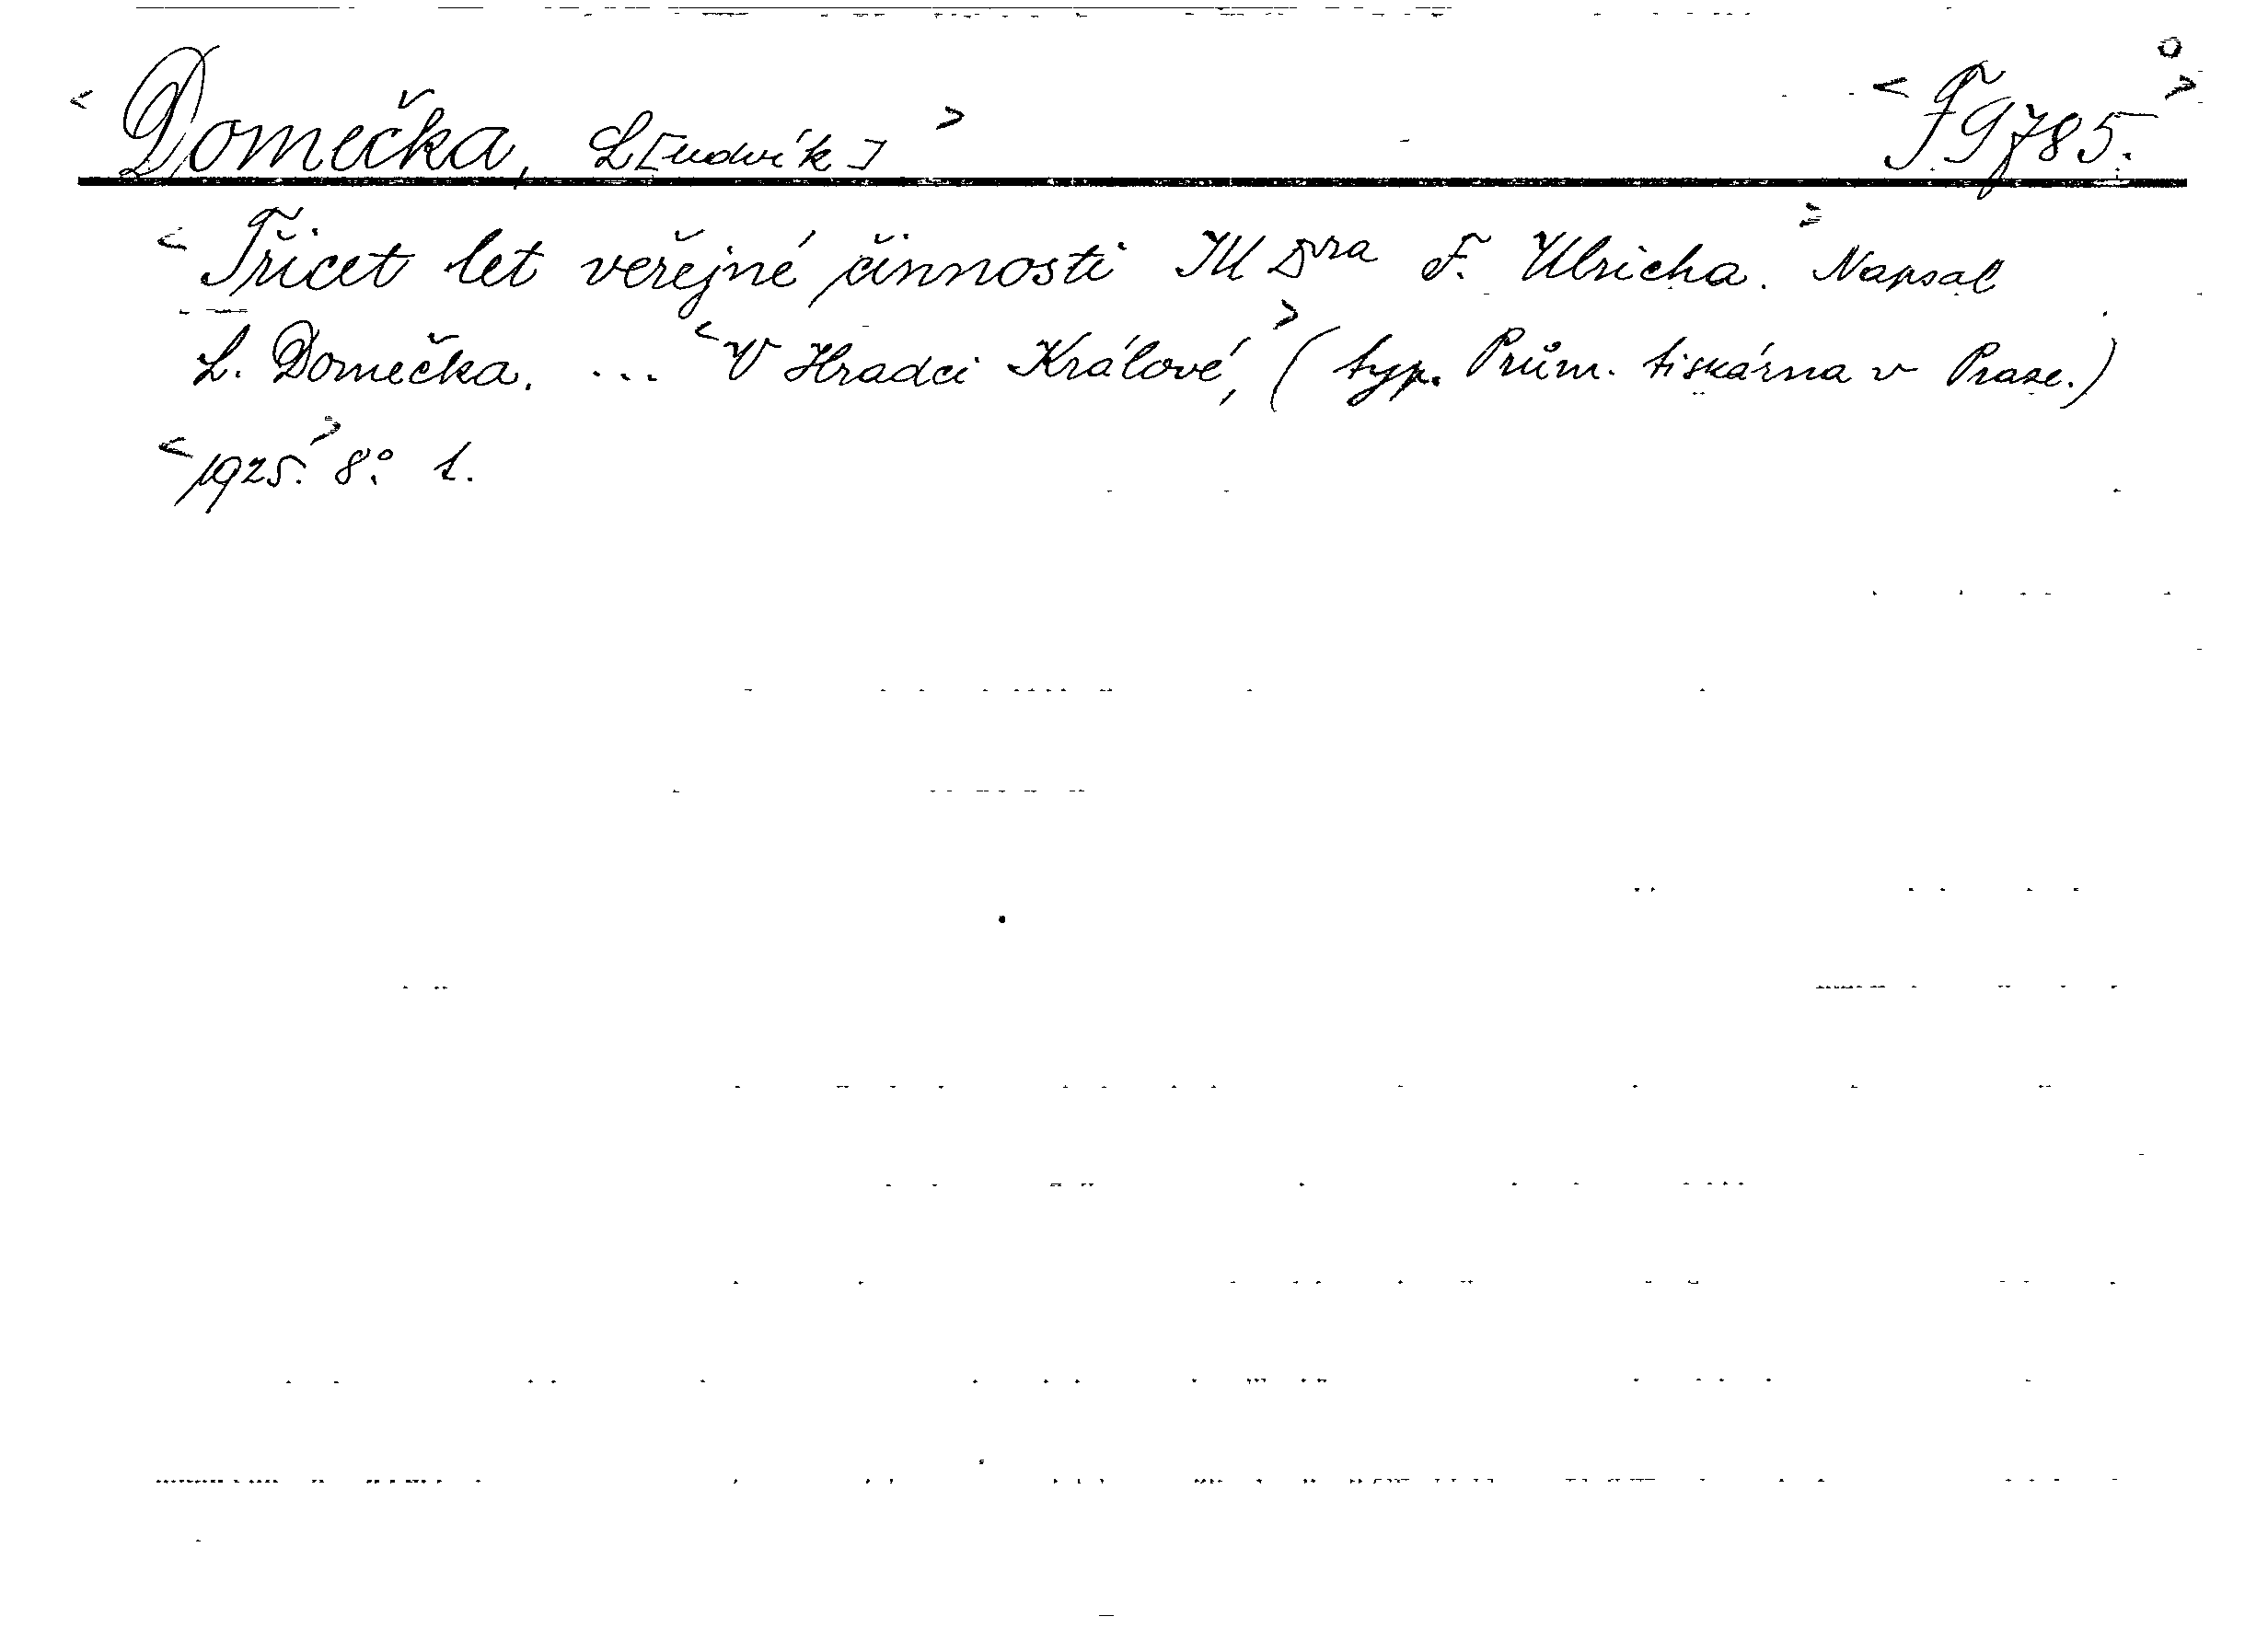 <Domečka, L[udvík]> <F 9785.>
<Třicet let veřejné činnosti JU Dra F. Ulricha.> Napsal
L. Domečka. ... <V Hradci Králové,> (typ. Prům. tiskárna v Praze.)
<1925.> 8°. 1.